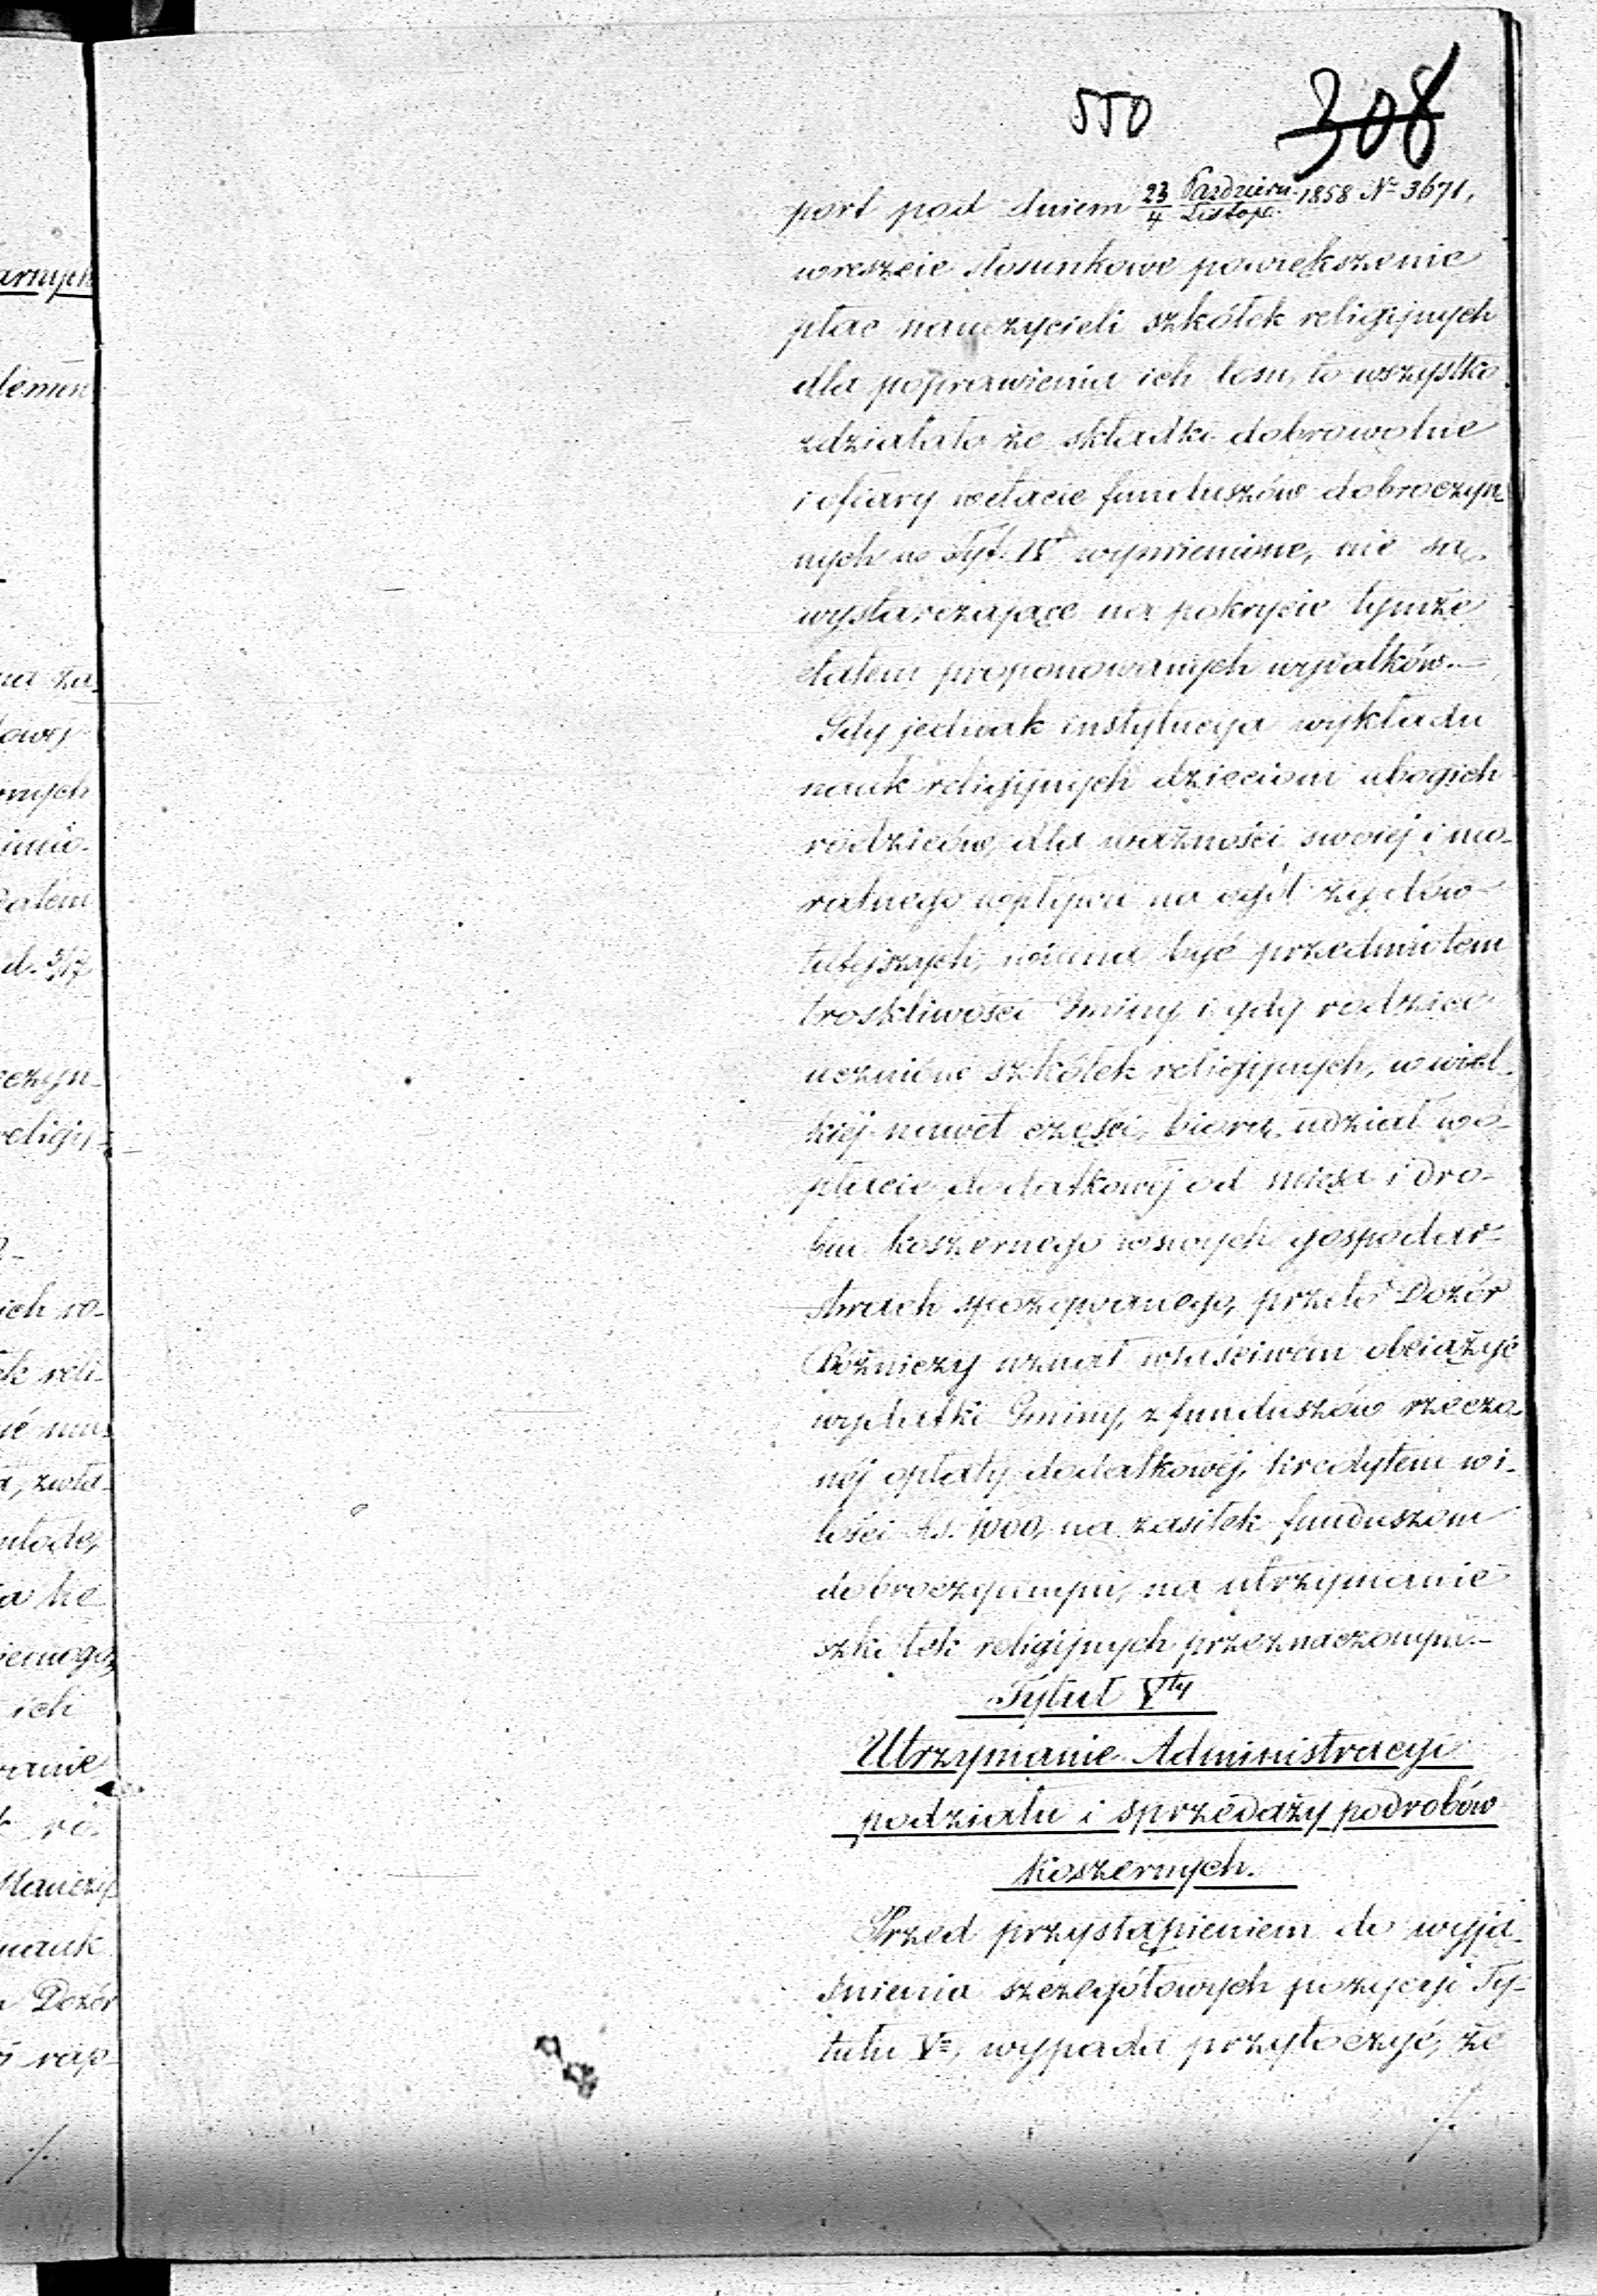 550 308
port pod dniem 23/4 Paździer./Listop. 1858 No 3671,
wreszcie stosunkowe powiększenie
płac nauczycieli szkółek religijnych
dla poprawienia ich losu, to wszystko
zdziałało że składki dobrowolne
i ofiary w etacie funduszów dobroczyn-
nych w Tyt. IV wymienione, nie są
wystarczające na pokrycie tymże
etatem proponowanych wydatków.—
Gdy jednak instytucya wykładu
nauk religijnych dzieciom ubogich
rodziców, dla ważności swojej i mo-
ralnego wpływu na ogół żydów
tutejszych, winna być przedmiotem
troskliwości Gminy i gdy rodzice
uczniów szkółek religijnych, w wiel-
kiej nawet części, biorą udział w o-
płacie dodatkowej od mięsa i dro-
biu koszernego w swych gospodar-
stwach spożywanego, przeto Dozór
Bóżniczy uznał właściwém obciążyć
wydatki Gminy, z funduszów rzeczo-
nej opłaty dodatkowej, kredytem w i-
lości Rs. 1000, na zasiłek funduszom
dobroczynnym, na utrzymanie
szkółek religijnych przeznaczonym.—
Tytuł Vty
Utrzymanie Administracyi
podziału i sprzedaży podrobów
koszernych.
Przed przystąpieniem do wyja-
śnienia szczegółowych pozycyi Ty-
tułu V, wypada przytoczyć, że
./.
arnych
na za-
owej
onych
d. 5/17
czyn-
religij-
ich ro-
ek reli-
ich
nauk
Dozór
rap-
./.